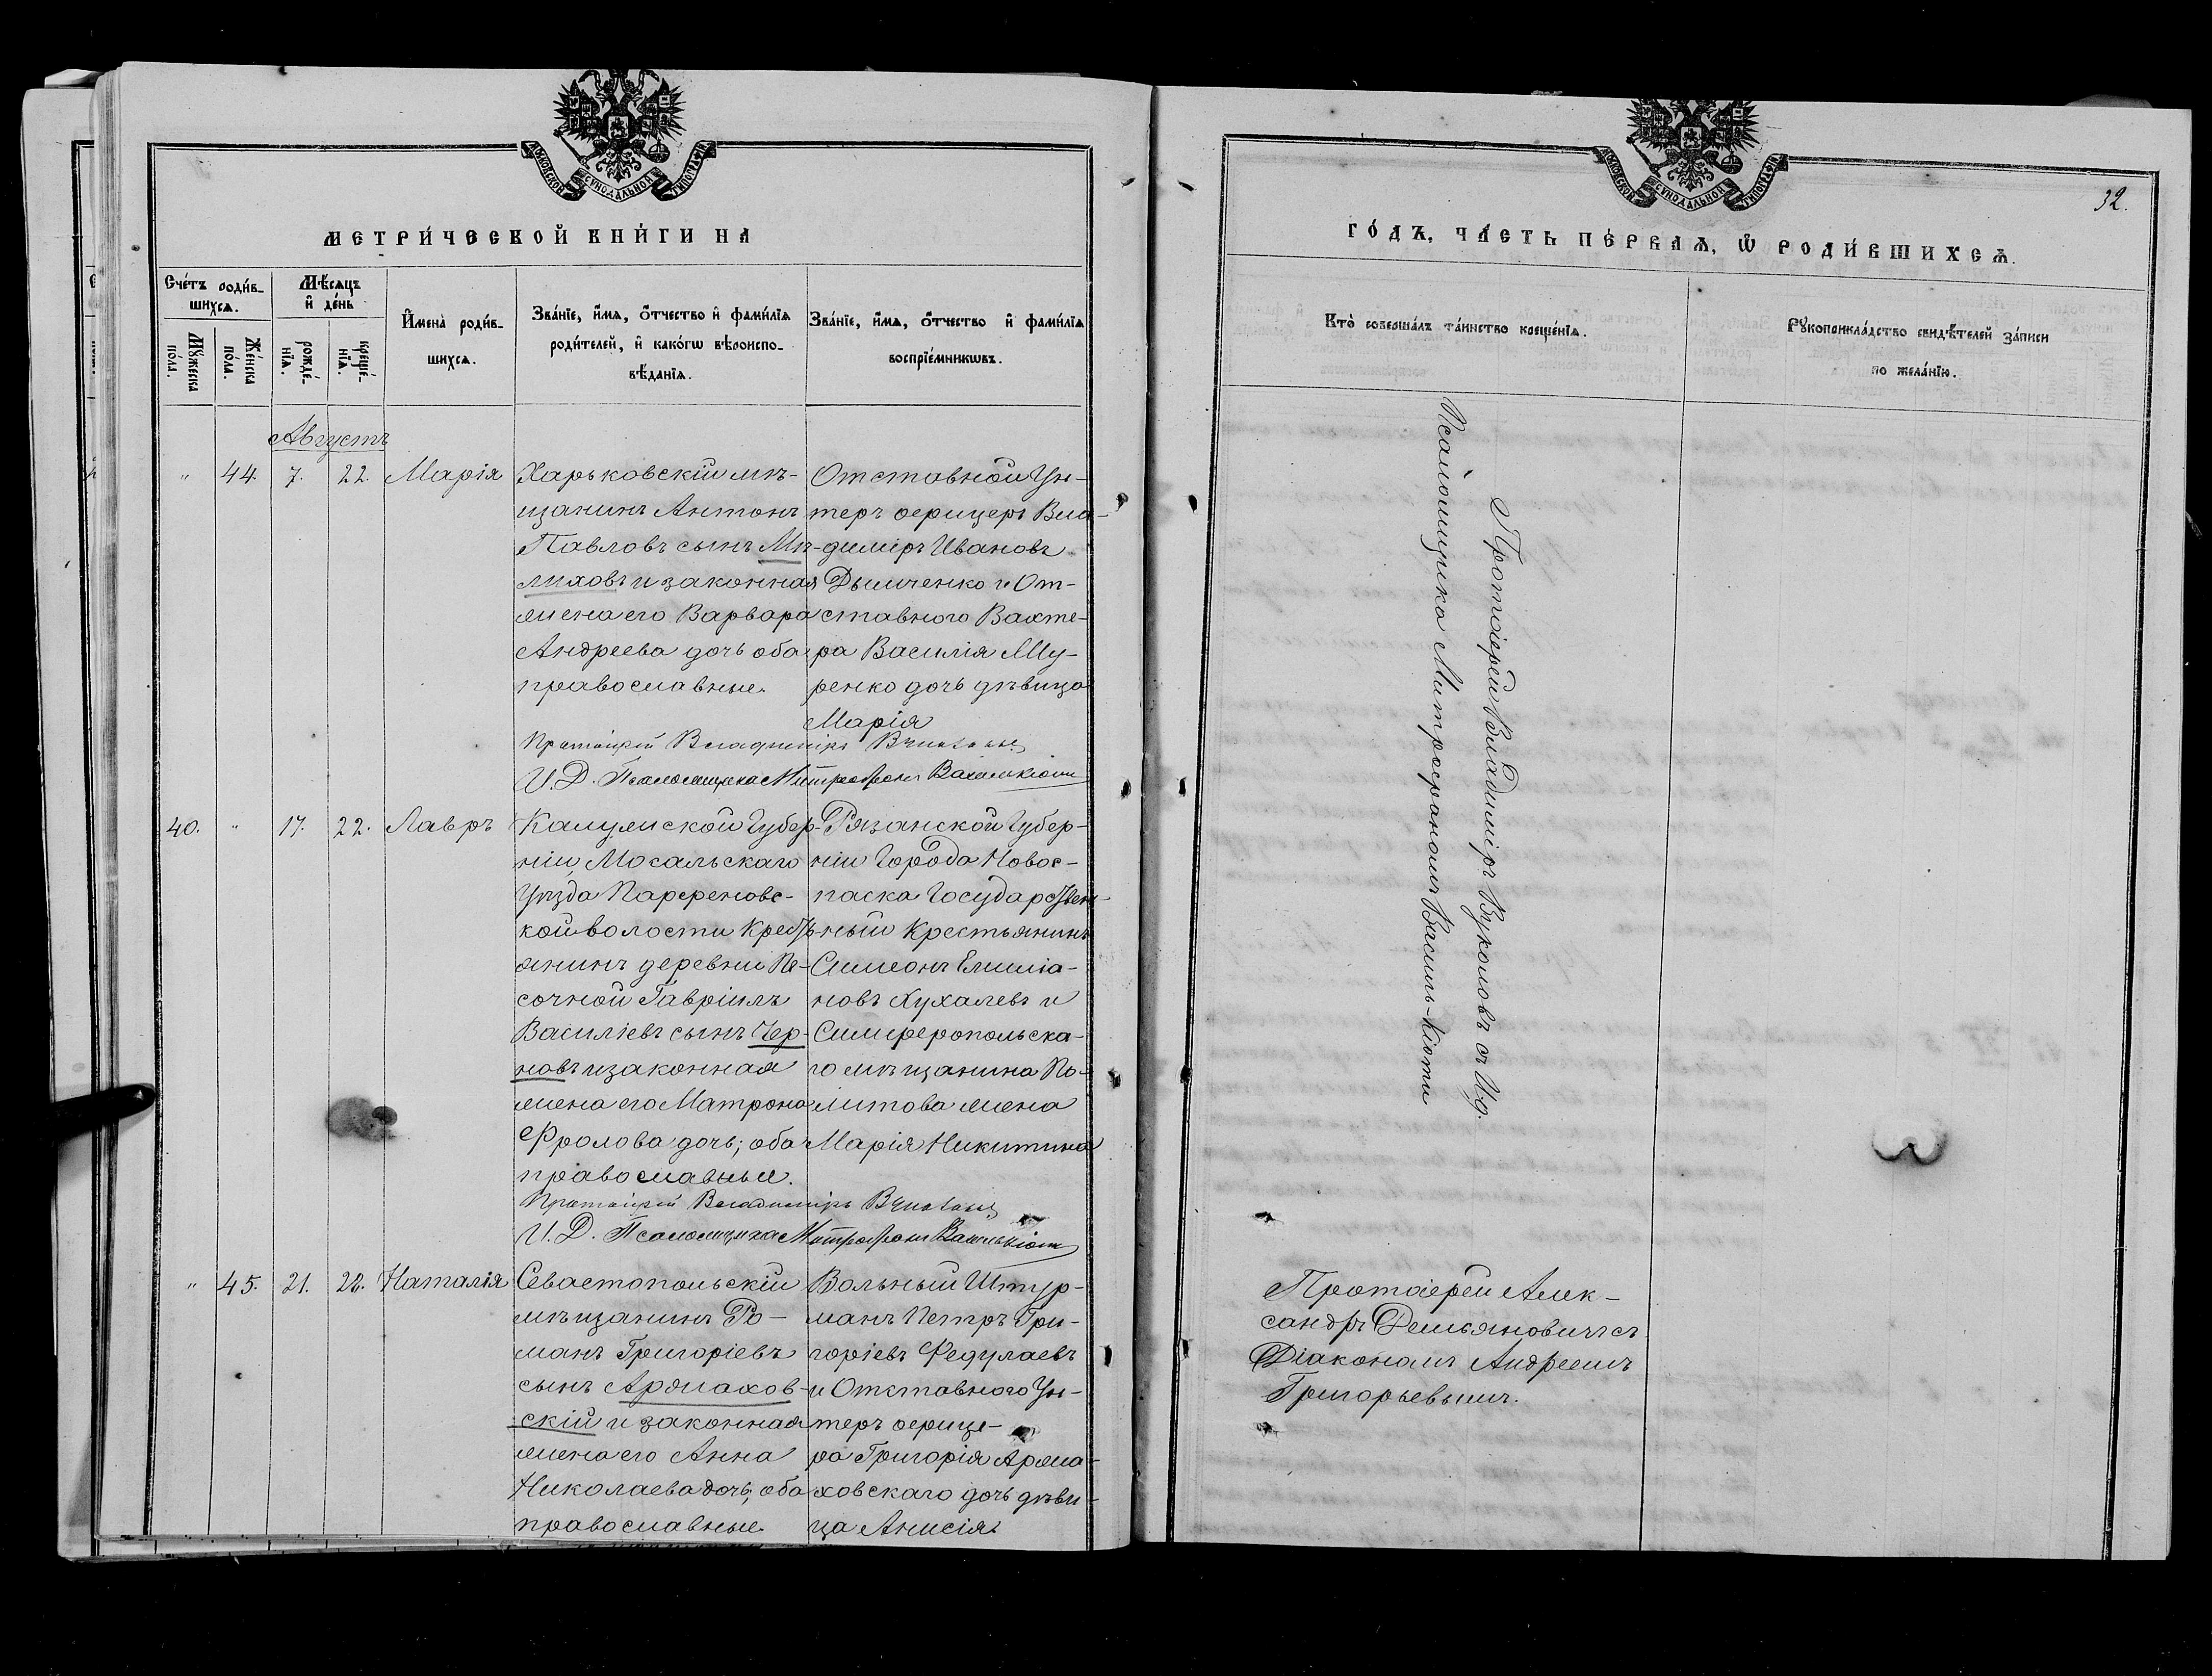 МОСКОВСКОЙ СѴНОДАЛЬНОЙ ТИПОГРАФІИ
МЕТРИ́ЧЕСКОЙ КНИ́ГИ НА
Сче́тъ роди́в-
шихсѧ.
Мѣ́сяцъ
и҆ де́нь
И҆мена̀ роди́в-
шихсѧ.
Зва́нїе, и҆́мѧ, ѻ҆́тчество и҆ фами́лїѧ
роди́телей, и҆ како́гѡ вѣроиспо-
вѣ́данїѧ.
Зва́нїе, и҆́мѧ, ѻ҆́тчество и҆ фами́лїѧ
воспрїе́мникѡвъ.
Мꙋ́жеска
по́ла.
Же́нска
по́ла.
рожде́-
нїѧ.
креще́-
нїѧ.
Августъ
" 44. 7. 22. Марія
Харьковскій мѣ-
щанинъ Антонъ
Павловъ сынъ Мѣ-
лиховъ и законная
жена его Варвара
Андреева дочь оба
православные.
Отставной Ун-
теръ офицеръ Вла-
димиръ Ивановъ
Дымченко и От-
ставного Вахте-
ра Василія Му-
ренко дочь дѣвица
Марія
Протоіерей Владиміръ Вуколовъ
И. Д. Псаломщика Митрофанъ Василькіоти
40. " 17. 22. Лавръ
Калужской Губер-
ніи, Мосальскаго
Уѣзда Парфеновс-
кой волости Крестъ
янинъ деревни Пе-
сочной Гавріилъ
Василіевъ сынъ Чер-
новъ и законная
жена его Матрона
Фролова дочь; оба
православные.
Рязанской Губер-
ніи Города Новос-
паска Государствен-
ный Крестьянинъ
Симеонъ Емиліа-
новъ Кухалевъ и
Симферопольска-
го мѣщанина По-
литова жена
Марія Никитина
Протоіерей Владиміръ Вуколовъ
И. Д. Псаломщика Митрофанъ Василькіоти
" 45. 21. 22. Наталія
Севастопольскій
мѣщанинъ Ро-
манъ Григоріевъ
сынъ Аржахов-
скій и законная
жена его Анна
Николаева дочь; оба
православные.
Вольный Штур-
манъ Петръ Гри-
горіевъ Федулаевъ
и Отставного Ун-
теръ офице-
ра Григорія Аржа-
ховскаго дочь дѣви-
ца Анисія.
МОСКОВСКОЙ СѴНОДАЛЬНОЙ ТИПОГРАФІИ
32.
ГО́ДЪ, ЧА́СТЬ ПЕ́РВАѦ, Ѡ҆ РОДИ́ВШИХСѦ.
Кто̀ соверша́лъ та́инство креще́нїѧ.
Рꙋкоприкла́дство свидѣ́телей за́писи
по жела́нїю.
Протоіерей Владиміръ Вуколовъ съ И.д.
Псаломщика Митрофаномъ Василь-Кіоти
Протоіерей Алек-
сандръ Демьяновичъ съ
Діакономъ Андреемъ
Григорьевымъ.